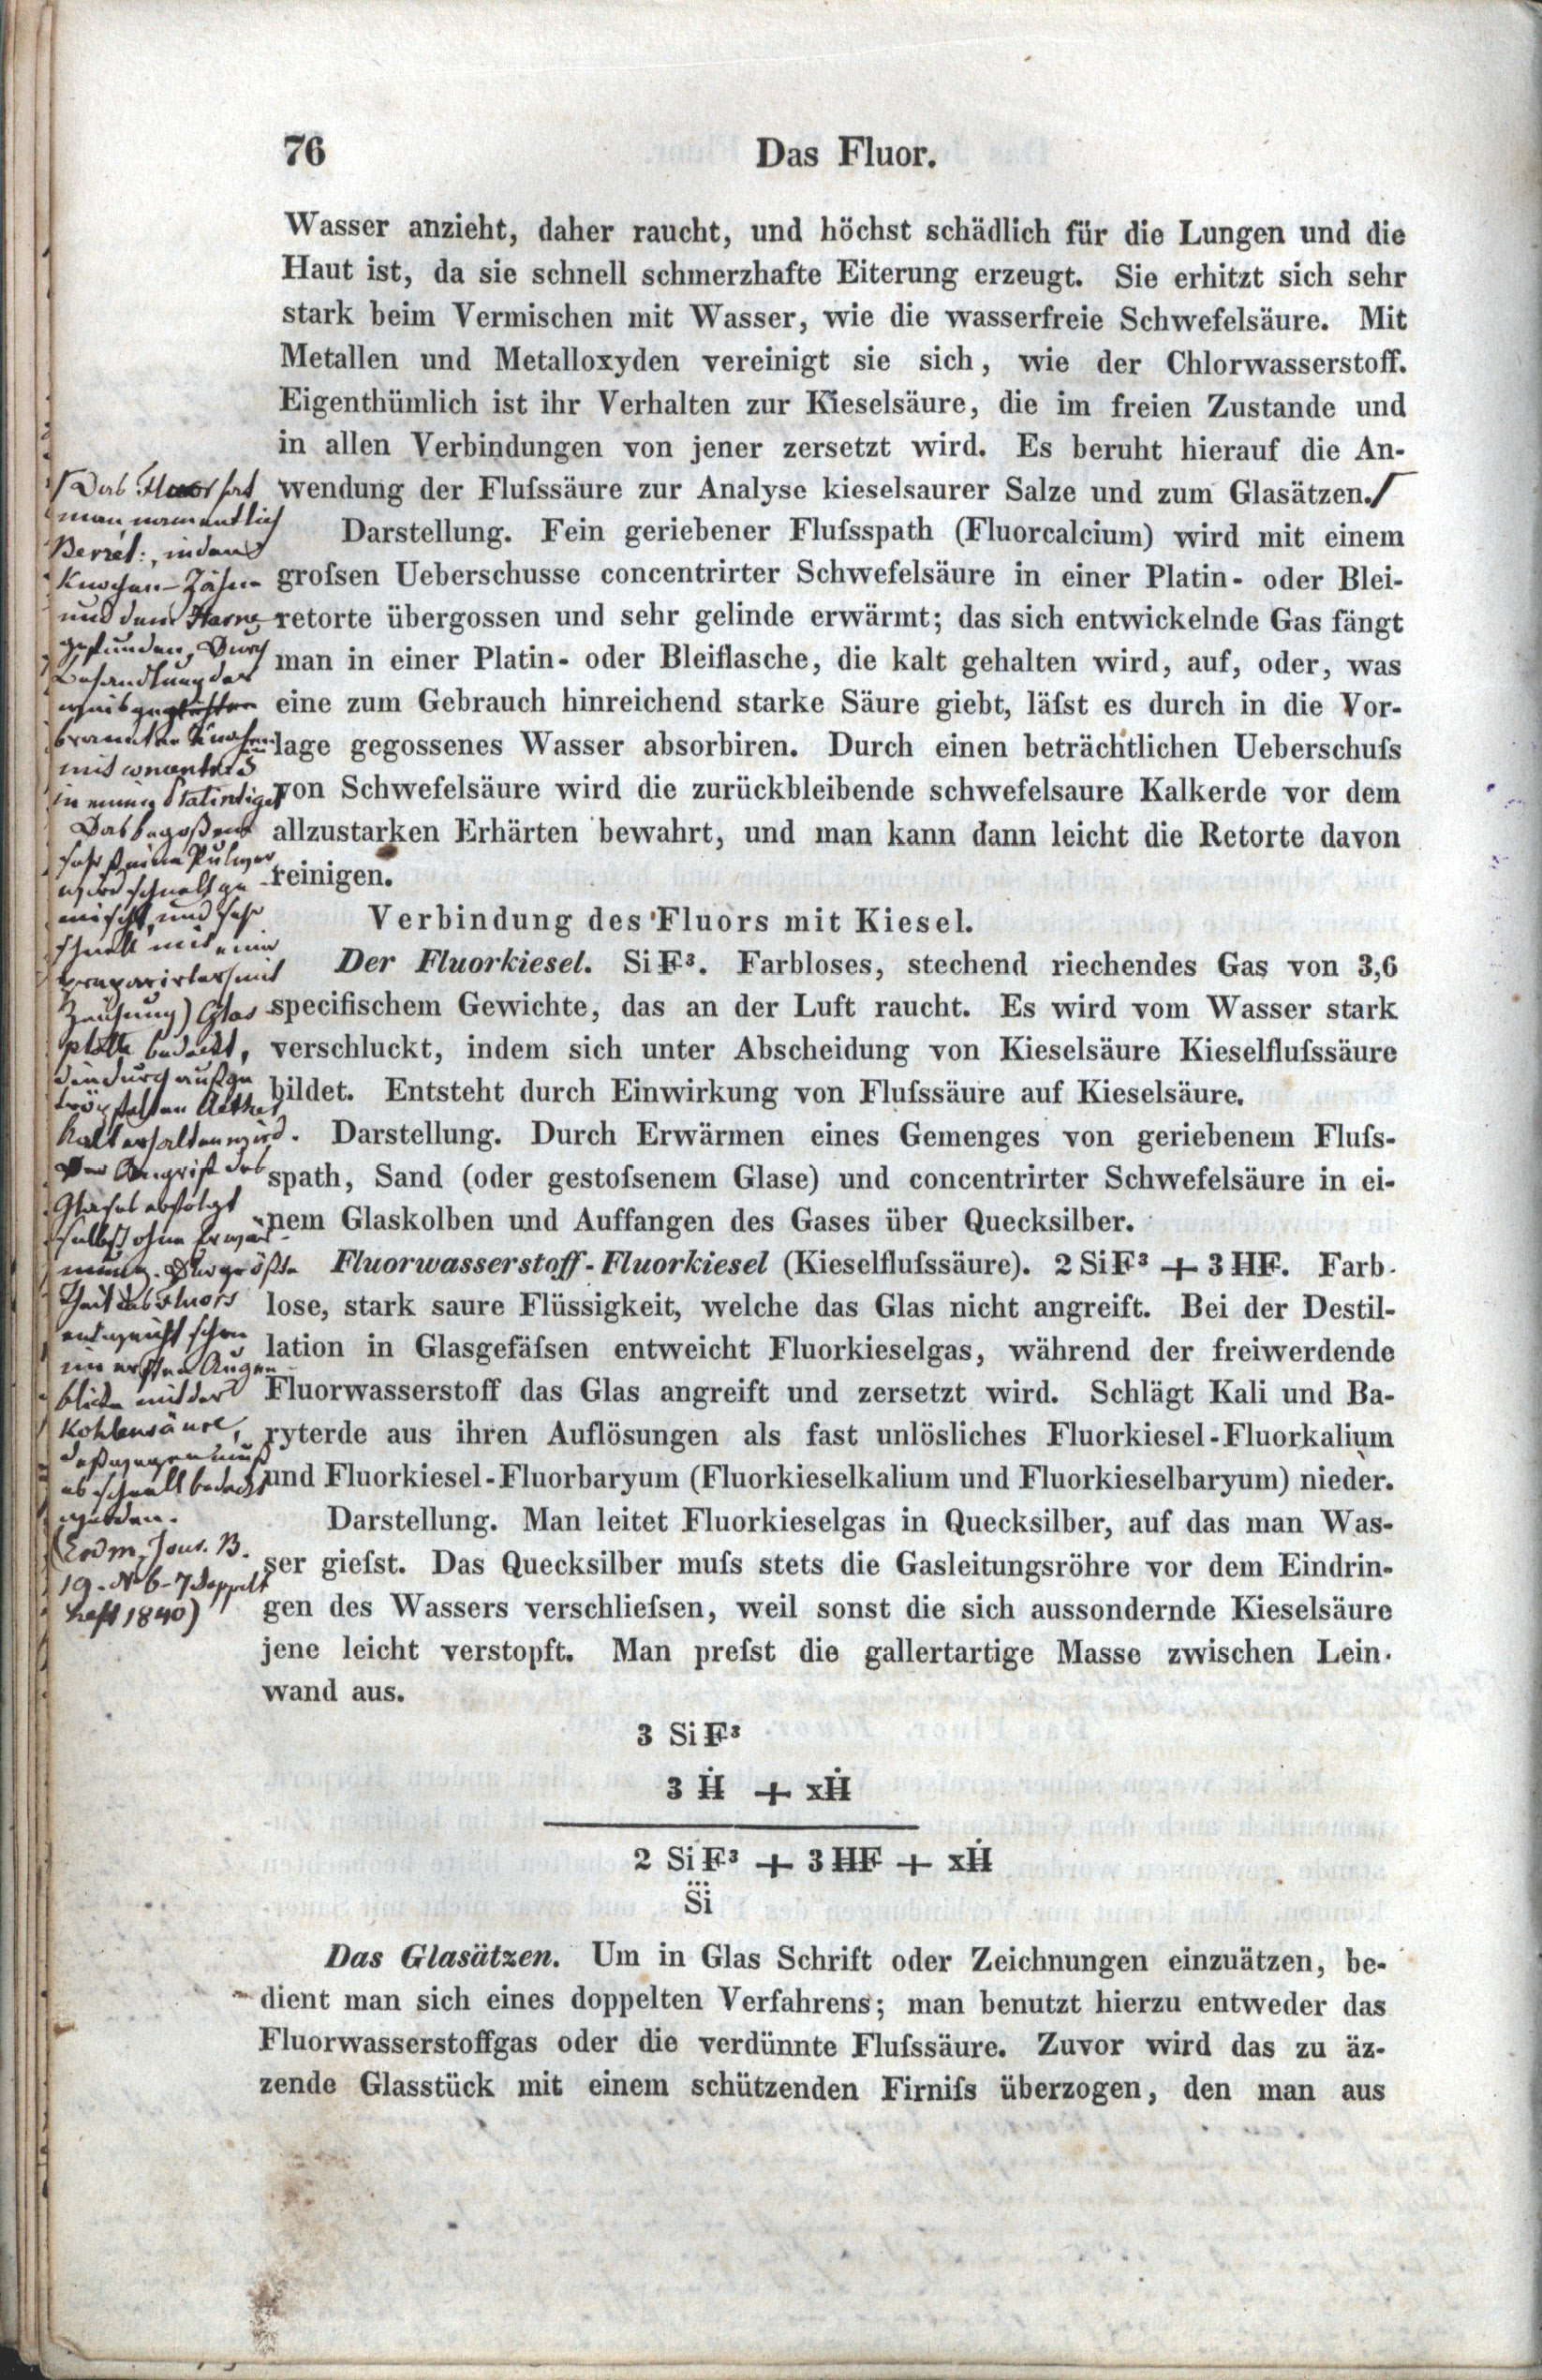 76
Das Fluor.
Wasser anzieht, daher raucht, und höchst schädlich für die Lungen und die
Haut ist, da sie schnell schmerzhafte Eiterung erzeugt. Sie erhitzt sich sehr
stark beim Vermischen mit Wasser, wie die wasserfreie Schwefelsäure. Mit
Metallen und Metalloxyden vereinigt sie sich, wie der Chlorwasserstoff.
Eigenthümlich ist ihr Verhalten zur Kieselsäure, die im freien Zustande und
in allen Verbindungen von jener zersetzt wird. Es beruht hierauf die An-
wendung der Fluſssäure zur Analyse kieselsaurer Salze und zum Glasätzen.
Darstellung. Fein geriebener Fluſsspath (Fluorcalcium) wird mit einem
groſsen Ueberschusse concentrirter Schwefelsäure in einer Platin- oder Blei-
retorte übergossen und sehr gelinde erwärmt; das sich entwickelnde Gas fängt
man in einer Platin- oder Bleiflasche, die kalt gehalten wird, auf, oder, was
eine zum Gebrauch hinreichend starke Säure giebt, läſst es durch in die Vor-
lage gegossenes Wasser absorbiren. Durch einen beträchtlichen Ueberschuſs
von Schwefelsäure wird die zurückbleibende schwefelsaure Kalkerde vor dem
allzustarken Erhärten bewahrt, und man kann dann leicht die Retorte davon
reinigen.
Verbindung des Fluors mit Kiesel.
Der Fluorkiesel. SiF³. Farbloses, stechend riechendes Gas von 3,6
specifischem Gewichte, das an der Luft raucht. Es wird vom Wasser stark
verschluckt, indem sich unter Abscheidung von Kieselsäure Kieselfluſssäure
bildet. Entsteht durch Einwirkung von Fluſssäure auf Kieselsäure.
Darstellung. Durch Erwärmen eines Gemenges von geriebenem Fluſs-
spath, Sand (oder gestoſsenem Glase) und concentrirter Schwefelsäure in ei-
nem Glaskolben und Auffangen des Gases über Quecksilber.
Fluorwasserstoff-Fluorkiesel (Kieselfluſssäure). 2 SiF³ + 3 HF. Farb-
lose, stark saure Flüssigkeit, welche das Glas nicht angreift. Bei der Destil-
lation in Glasgefäſsen entweicht Fluorkieselgas, während der freiwerdende
Fluorwasserstoff das Glas angreift und zersetzt wird. Schlägt Kali und Ba-
ryterde aus ihren Auflösungen als fast unlösliches Fluorkiesel-Fluorkalium
und Fluorkiesel-Fluorbaryum (Fluorkieselkalium und Fluorkieselbaryum) nieder.
Darstellung. Man leitet Fluorkieselgas in Quecksilber, auf das man Was-
ser gieſst. Das Quecksilber muſs stets die Gasleitungsröhre vor dem Eindrin-
gen des Wassers verschlieſsen, weil sonst die sich aussondernde Kieselsäure
jene leicht verstopft. Man preſst die gallertartige Masse zwischen Lein-
wand aus.
3 SiF³
3 Ḣ + xḢ
2 SiF³ + 3 HF + xḢ
S⃛i
Das Glasätzen. Um in Glas Schrift oder Zeichnungen einzuätzen, be-
dient man sich eines doppelten Verfahrens; man benutzt hierzu entweder das
Fluorwasserstoffgas oder die verdünnte Fluſssäure. Zuvor wird das zu äz-
zende Glasstück mit einem schützenden Firniſs überzogen, den man aus
Das Fluor hat
man namentlich
Berzel:, in den
Knochen-Zähne
und dem Harne
gefunden, Durch
Behandlung der
weisge
brannten Knochen
mit
in einem Platintiegel
Das begoßene
sehr feine Pulver
wird schnell ge
mischt, und sehr
schnell mit einer
präparirter (mit
Zeichnung) Glas
platte bedeckt,
die durch aufge
tröpfelten Aether
kalt erhalten wird.
Der Angrif des
Glases erfolgt
selbst ohne Erwär-
mung. Der größte
Theil des Fluors
entweicht schon
im ersten Augen-
blicke mit der
Kohlensäure,
deßwegen muß
es schnell bedeckt
werden.
(Erdm. Jour. B.
19. No 6-7 Doppelt
heft 1840)